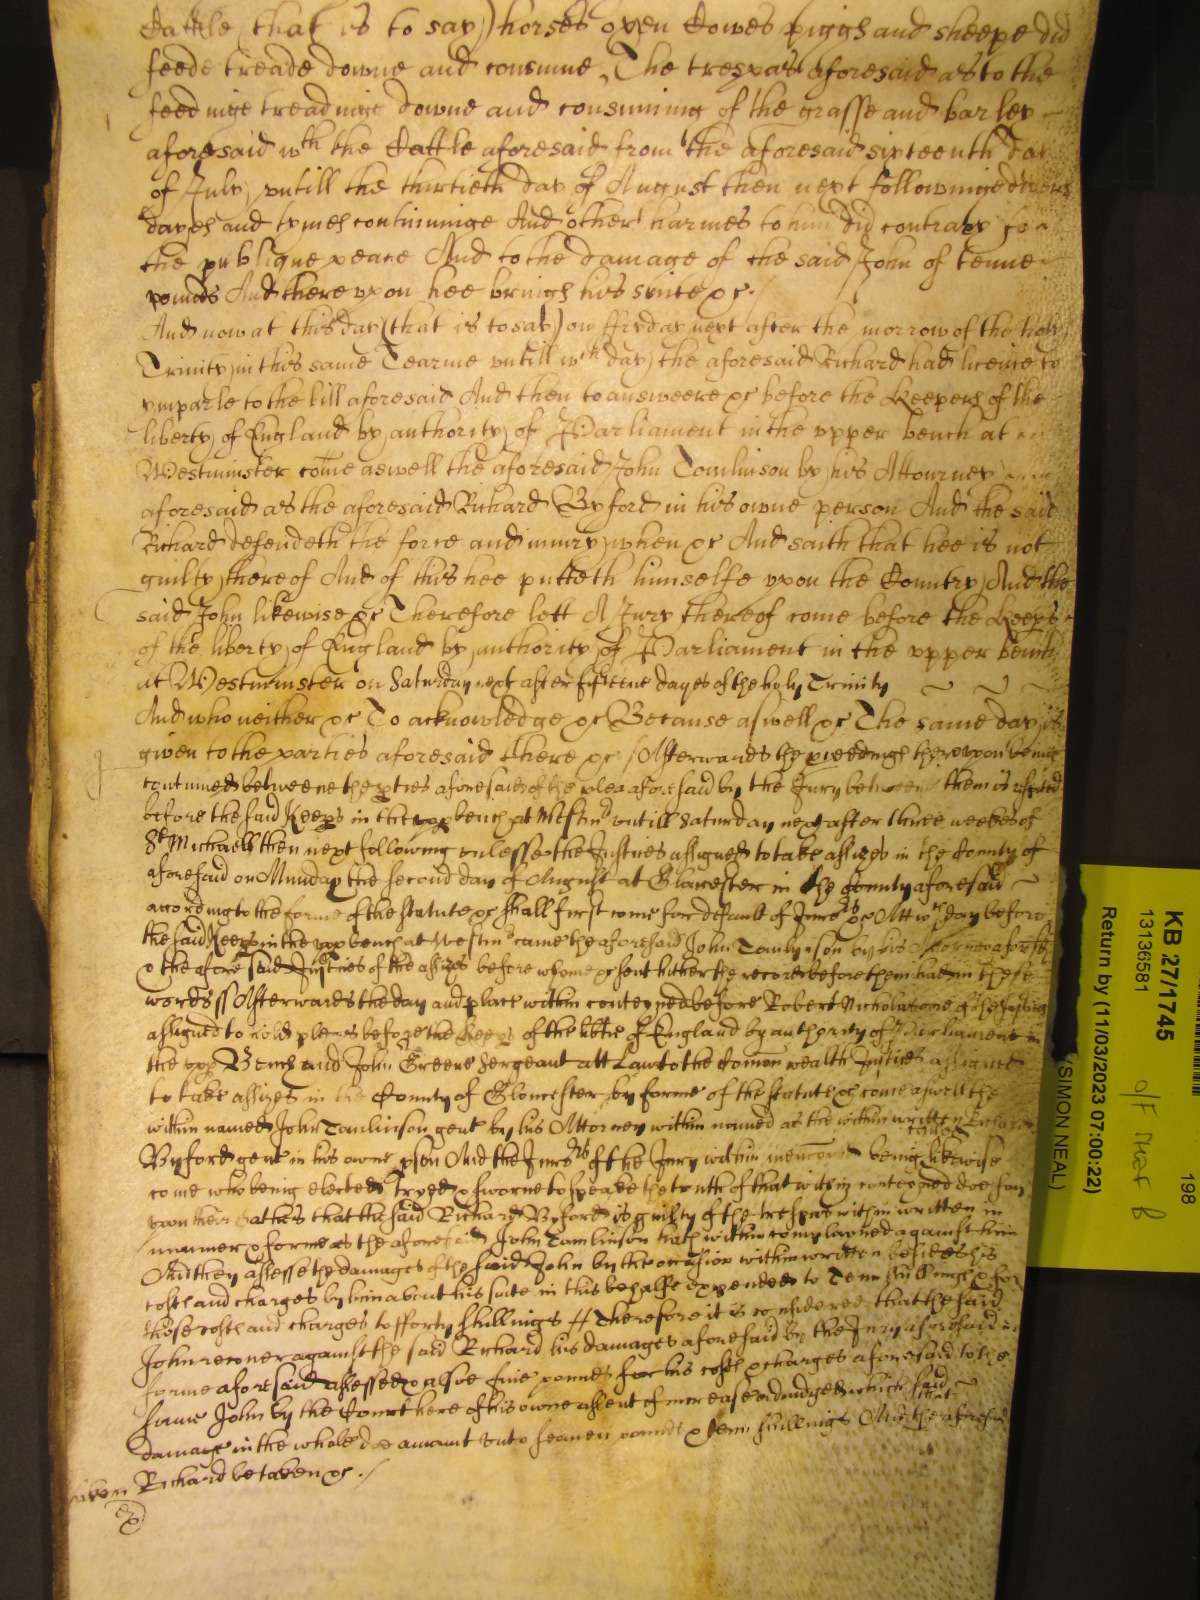 Cattle (that is to say) horses oxen Cowes piggs and sheepe did
feede treade downe and consume The trespas aforesaid as to the
feedinge treadinge downe and consuming of the grasse and barley
aforesaid wth the Cattle aforesaid from the aforesaid sixteenth day
of July vntill the thirtieth day of August then next followinge divers
dayes and tymes continuinge And other harmes to him did contrary to
the publique peace And to the damage of the said John of tenne
pounds And there vpon hee brings his suite &c.
And now at this day (that is to say) on ffryday next after the morrow of the holy
Trinity in this same Tearme vntill wch day the aforesaid Richard had licence to
ymparle to the bill aforesaid And then to answeere &c before the Keepers of the
liberty of England by authority of Parliament in the vpper bench at
Westminster come aswell the aforesaid John Tomlinson by his Attourney
aforesaid as the aforesaid Richard Byford in his owne person And the said
Richard defendeth the force and iniury when &c And saith that hee is not
guilty thereof And of this hee putteth himselfe vpon the Country And the
said John likewise &c Therefore lett A Jury thereof come before the Keeps
of the liberty of England by authority of Parliament in the vpper bench
at Westminster on Saturday next after fifteene dayes of the holy Trinity
And who neither &c To acknowledge &c Because aswell &c The same day is
given to the parties aforesaid there &c / Afterwards the pceedings therevpon being
continued betweene the pties aforesaid of the plea aforesaid by the Jury between them is respited
before the said Keeps in the vpp bench at Westmr vntill Saturday next after three weekes of
St Michaell then next following vnlesse the Justices assigned to take assizes in the County of
aforesaid on Munday the second day of August at Glocester in the County aforesaid
according to the forme of the statute &c shall first come for default of Jurors &c Att wch day before
the said Keeps in the vpp bench at Westmr came the aforesaid John Tomlinson by his Attorney aforesd
& the aforesaid Justices of the assizes before whome &c sent hither the record before them had in these
words ss Afterwards the day and place within conteyned before Robert Nicholas one of the Justices
assigned to hold pleas before the Keeps of the libtie of England by authority of Parliament in
the vpp Bench and John Greene Sergeant att Law to the Comon wealth Justices assigned
to take assizes in the County of Gloucester by forme of the statute &c come aswell the
within named John Tomlinson gent by his Attorney within named as the within written Richard
Byford gent in his owne pson And the Jurors of the Jury within menconed being likewise
come who being elected tryed & sworne to speake the truth of that within conteyned doe say
vpon their oathes that the said Richard Byford is guilty of the trespas within written in
manner & forme as the aforesaid John Tomlinson hath within complayned against him
And they assesse the damages of the said John by the occasion within written besides his
costs and charges by him about his suite in this behalfe expended to Tenn shillings & for
those costs and charges to fforty shillings // Therefore it is considered that the said
John recover against the said Richard his damages aforesaid by the Jury aforesaid in
forme aforesaid assessed & alsoe five pounds for his costs & charges aforesaid to the
same John by the Court here of his owne assent of increase adiudged which said
damages in the whole doe amount vnto seaven pounds & tenn shillings And the aforesaid
Richard be taken &c. /
KB 27/1745
13136581
Return by (11/03/2023 07:00:22)
(SIMON NEAL)
198